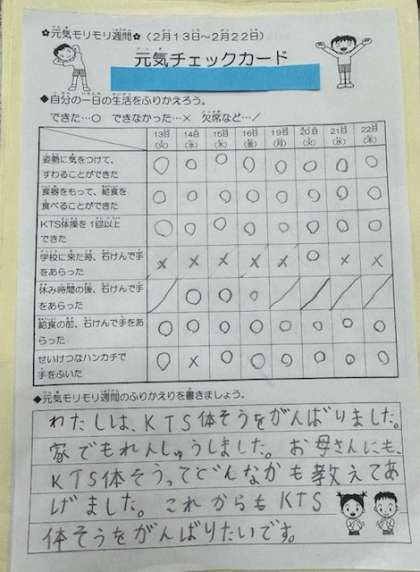 ✿元気モリモリ週間✿(2月13日～2月22日)
元気チェックカード
◆自分の一日の生活をふりかえろう。
できた…○ できなかった…× 欠席など…／
13日(火) 14日(水) 15日(木) 16日(金) 19日(月) 20日(火) 21日(水) 22日(木)
姿勢に気をつけて、すわることができた ○ ○ ○ ○ ○ ○ ○ ○
食器をもって、給食を食べることができた ○ ○ ○ ○ ○ ○ ○ ○
KTS体操を1回以上できた ○ ○ ○ ○ ○ ○ ○ ○
学校に来た時、石けんで手をあらった × × × × × ○ × ×
休み時間の後、石けんで手をあらった ／ ○ ○ ○ ／ ／ ／ ／
給食の前、石けんで手をあらった ○ ○ ○ ○ ○ ○ ○ ○
せいけつなハンカチで手をふいた ○ × ○ ○ ○ ○ ○ ○
◆元気モリモリ週間のふりかえりを書きましょう。
わたしは、KTS体そうをがんばりました。
家でもれんしゅうしました。お母さんにも、
KTS体そうってどんなかも教えてあ
げました。これからもKTS
体そうをがんばりたいです。